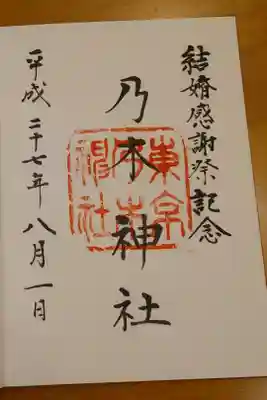 結婚感謝祭記念
乃木神社
東京乃木神社
平成二十七年八月一日